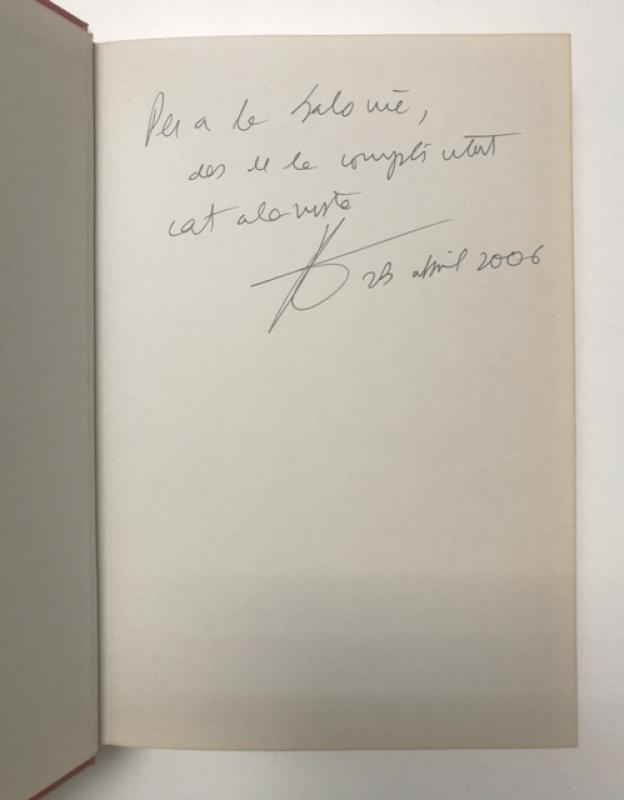 Per a la Salomé,
des de la complicitat
catalanista
23 abril 2006